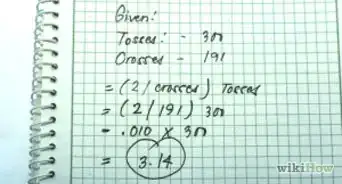 Given:
Tosses: - 300
Crosses - 191
= (2/crosses) Tosses
= (2/191) 300
= .010 x 300
= 3.14
wikiHow